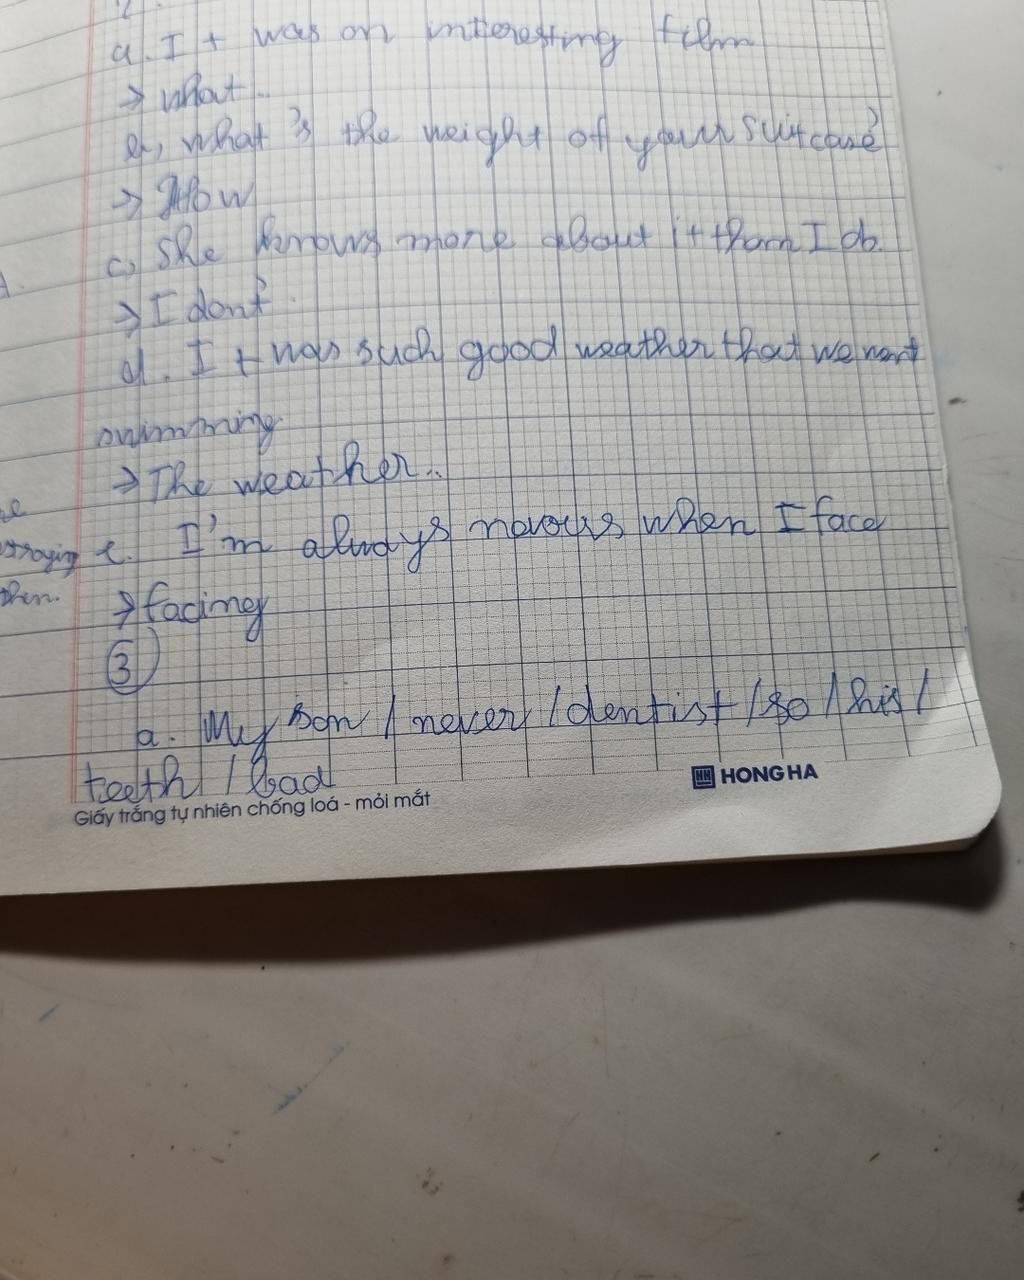 2.
a. I t was an interesting film
→ what..
b, what 's the weight of your suitcase?
→ How
c, she knows more about it than I do.
→ I dont
d. I t was such good weather that we went
swimming
→ The weather..
e. I'm always nervous when I face
→ facing
then.
③
a. My son / never / dentist / so / his /
teeth / bad
HH HONG HA
Giấy trắng tự nhiên chống loá - mỏi mắt